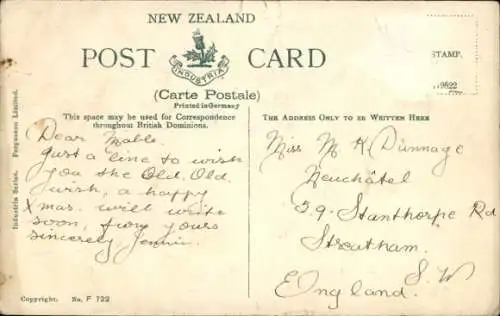 NEW ZEALAND
POST CARD
INDUSTRIA
(Carte Postale)
Printed in Germany
STAMP.
9622
This space may be used for Correspondence
throughout British Dominions.
THE ADDRESS ONLY TO BE WRITTEN HERE
Industria Series. Fergusson Limited.
Dear Mable.
Just a line to wish
you the Old. Old.
wish, a happy
Xmas. will write
soon, from yours
sincerely Jennie.
Miss M K Dunnage
Neuchâtel
59. Stanthorpe Rd
Streatham.
S. W
England.
Copyright. No. F 722